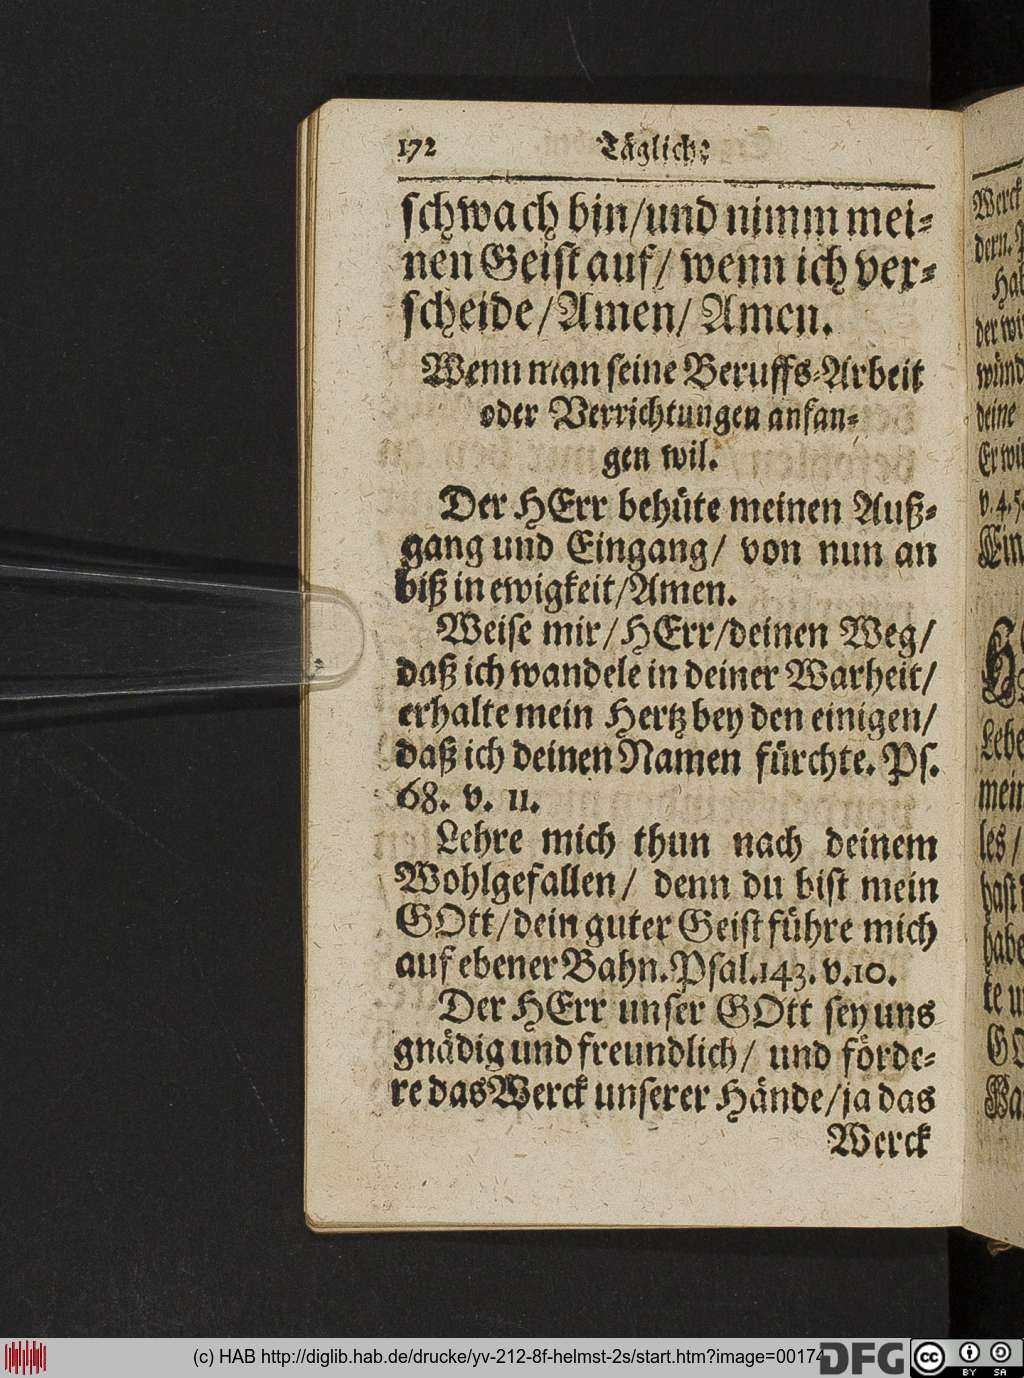 172 Täglich⸗
schwach bin/und nimm mei⸗
nen Geist auf/ wenn ich ver⸗
scheide/Amen/ Amen.
Wenn man seine Beruffs⸗Arbeit
oder Verrichtungen anfan⸗
gen wil.
Der HErr behüte meinen Auß⸗
gang und Eingang/ von nun an
biß in ewigkeit/Amen.
Weise mir/HErr/deinen Weg/
daß ich wandele in deiner Warheit/
erhalte mein Hertz bey den einigen/
daß ich deinen Namen fürchte. Ps.
68. v. 11.
Lehre mich thun nach deinem
Wohlgefallen/ denn du bist mein
GOtt/dein guter Geist führe mich
auf ebener Bahn. Psal.143. v.10.
Der HErr unser GOtt sey uns
gnädig und freundlich/ und förde⸗
re das Werck unserer Hände/ja das
Werck
Werck
dern.
der wi
deine
v. 4. 5
Ein
Lebe
mein
les/
hast
habe
te u
GO
(c) HAB http://diglib.hab.de/drucke/yv-212-8f-helmst-2s/start.htm?image=00174
DFG
cc BY SA